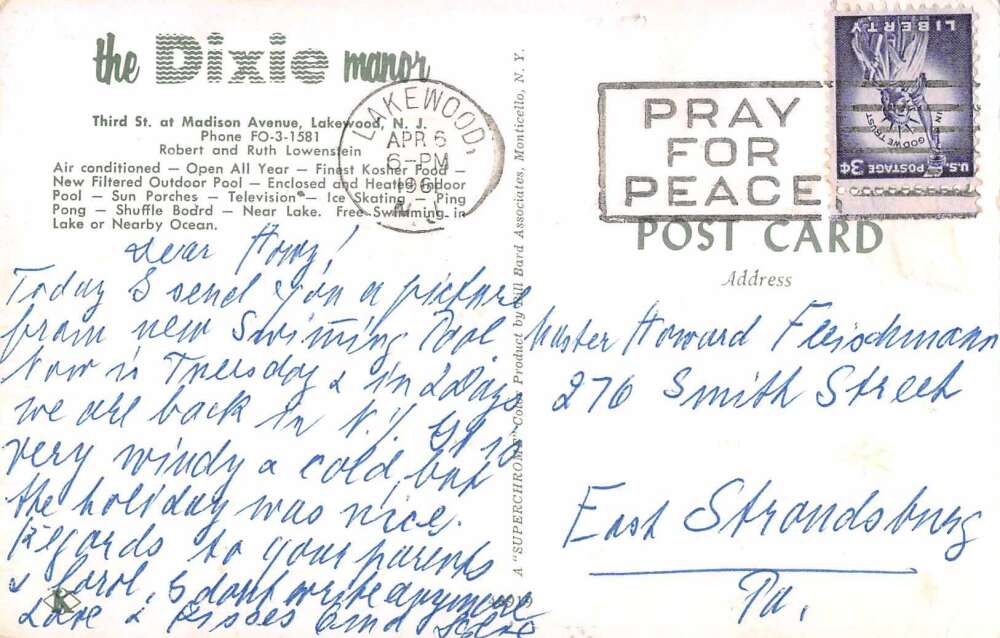 the Dixie manor
Third St. at Madison Avenue, Lakewood, N. J.
Phone FO-3-1581
Robert and Ruth Lowenstein
Air conditioned — Open All Year — Finest Kosher Food —
New Filtered Outdoor Pool — Enclosed and Heated Indoor
Pool — Sun Porches — Television — Ice Skating — Ping
Pong — Shuffle Board — Near Lake. Free Swimming in
Lake or Nearby Ocean.
LAKEWOOD,
APR 6
6-PM
1961
N.J.
PRAY
FOR
PEACE
LIBERTY
IN GOD WE TRUST
U.S. POSTAGE 3¢
POST CARD
Address
Dear Howy!
Today I send you a picture
from new Swiming Pool
Now is Thuesday & in 2 Days
we are back in N.Y. It is
very windy & cold, but
the holiday was nice.
Regards to your parents
& Carol, I dont write anymore
Love & Kisses
Master Howard Fleischmann
276 Smith Street
East Strondsburg
Pa.
A "SUPERCHROME" Color Product by Bill Bard Associates, Monticello, N. Y.
K